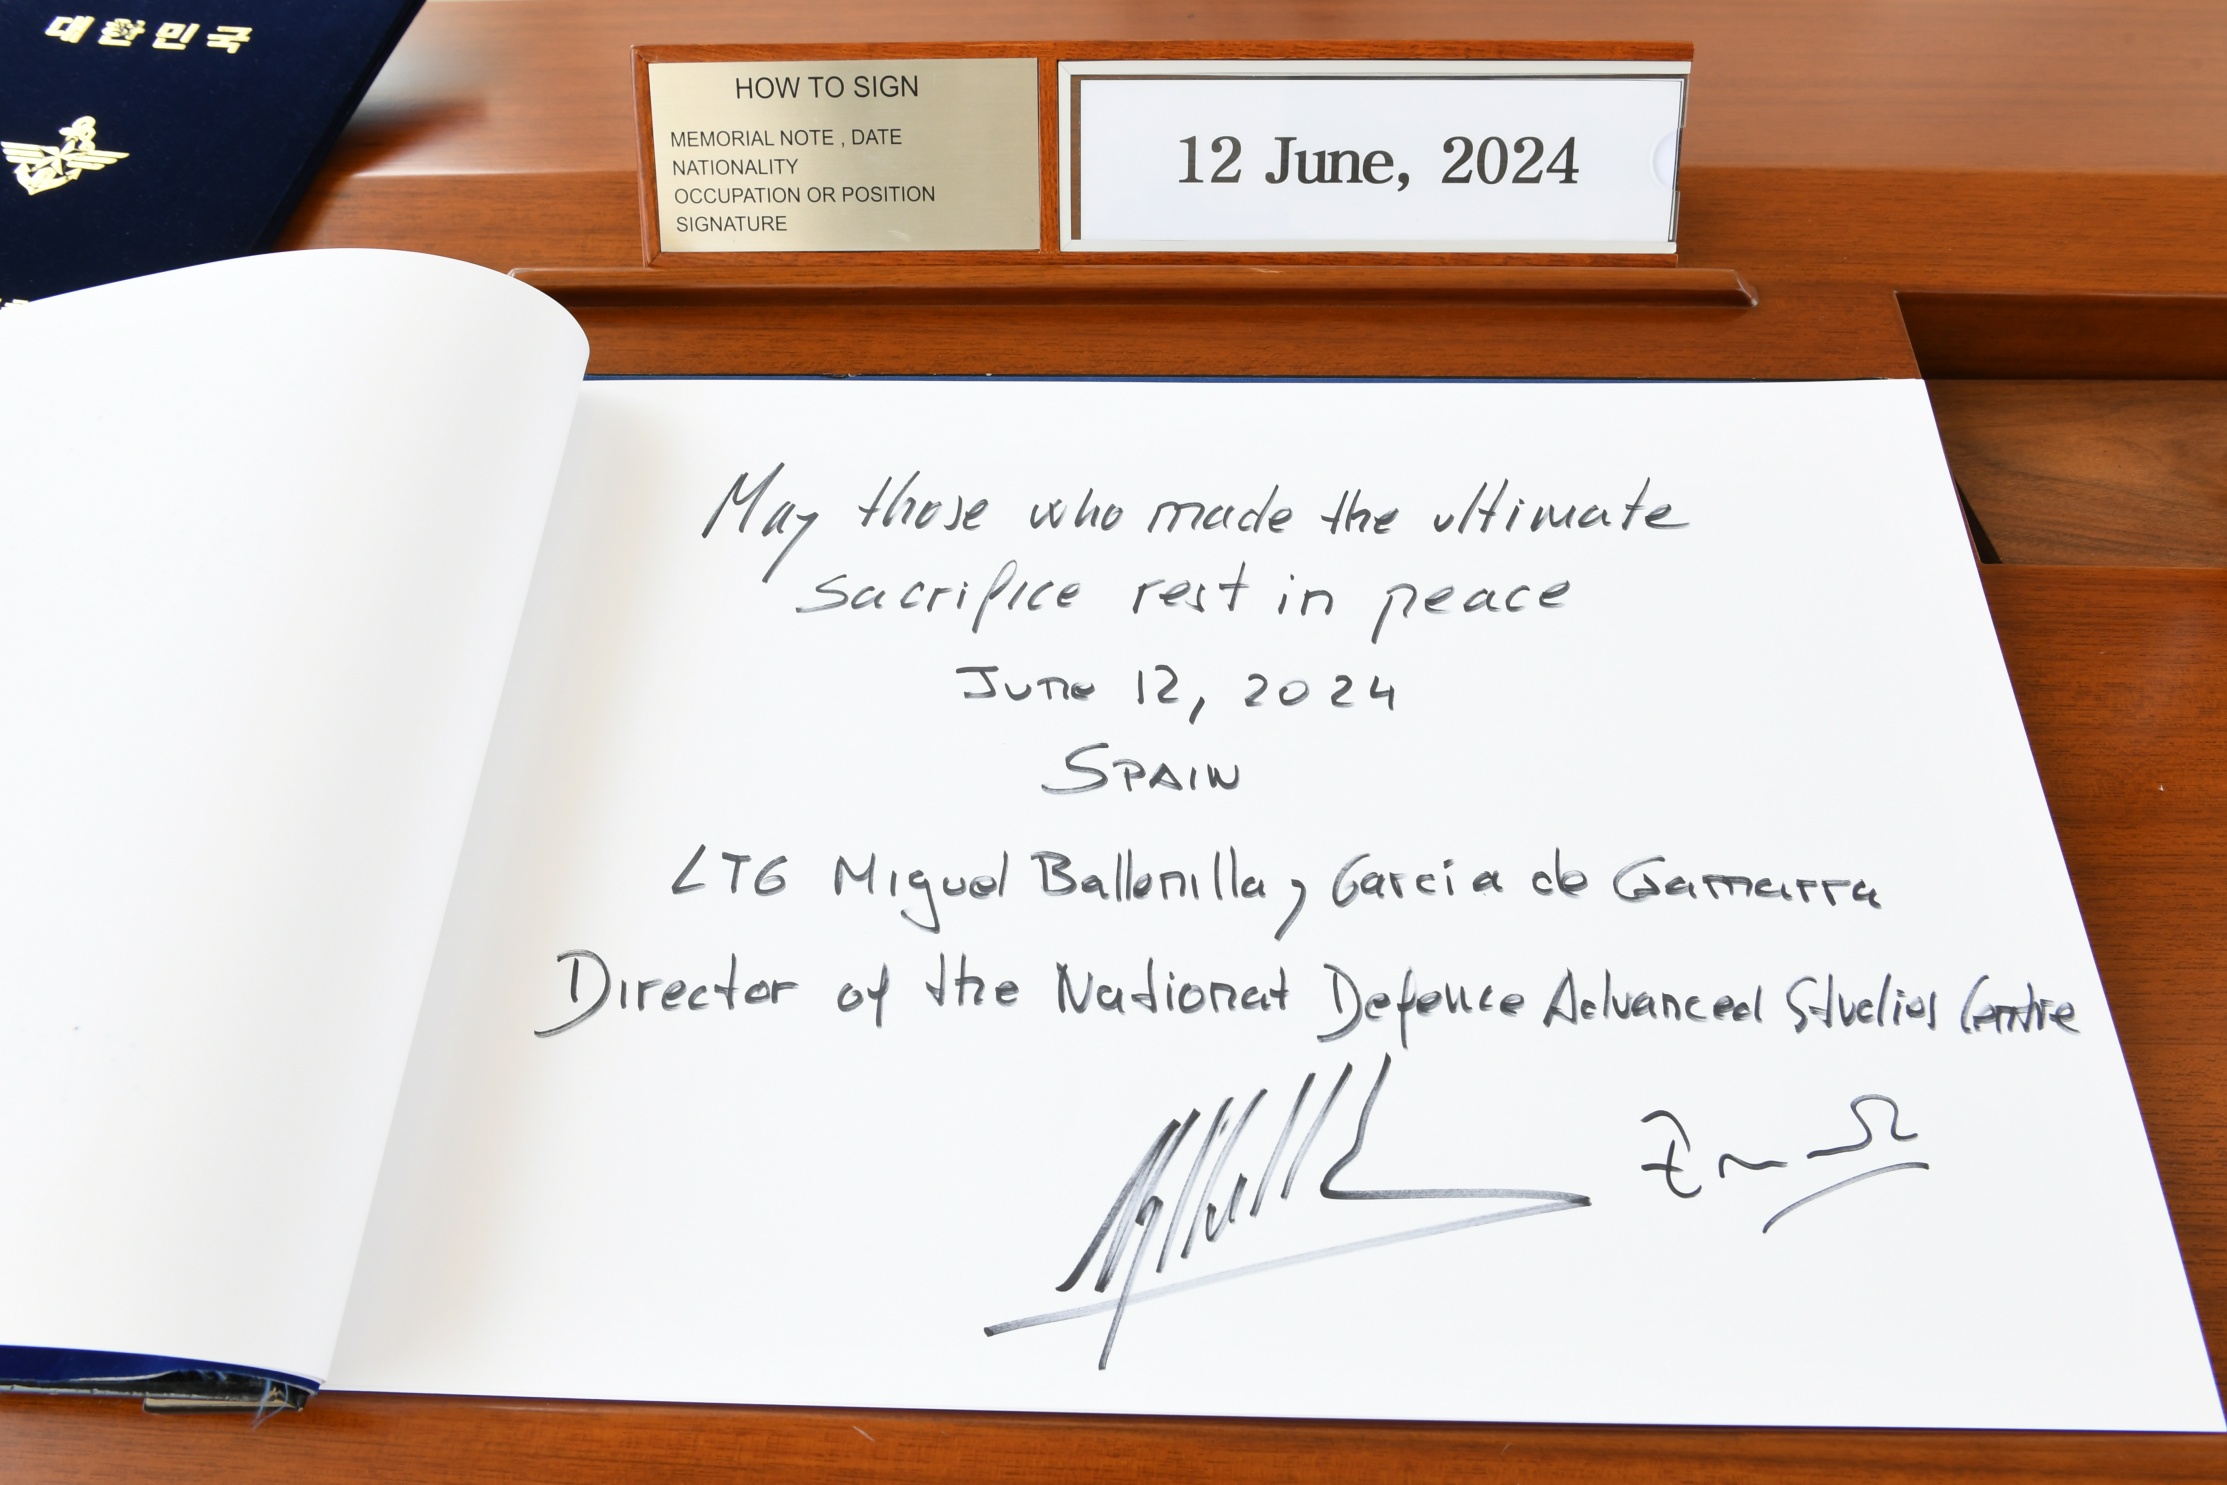 대한민국
HOW TO SIGN
MEMORIAL NOTE , DATE
NATIONALITY
OCCUPATION OR POSITION
SIGNATURE
12 June, 2024
May those who made the ultimate
sacrifice rest in peace
June 12, 2024
SPAIN
LTG Miguel Ballenilla y Garcia de Gamarra
Director of the National Defence Advanced Studies Centre